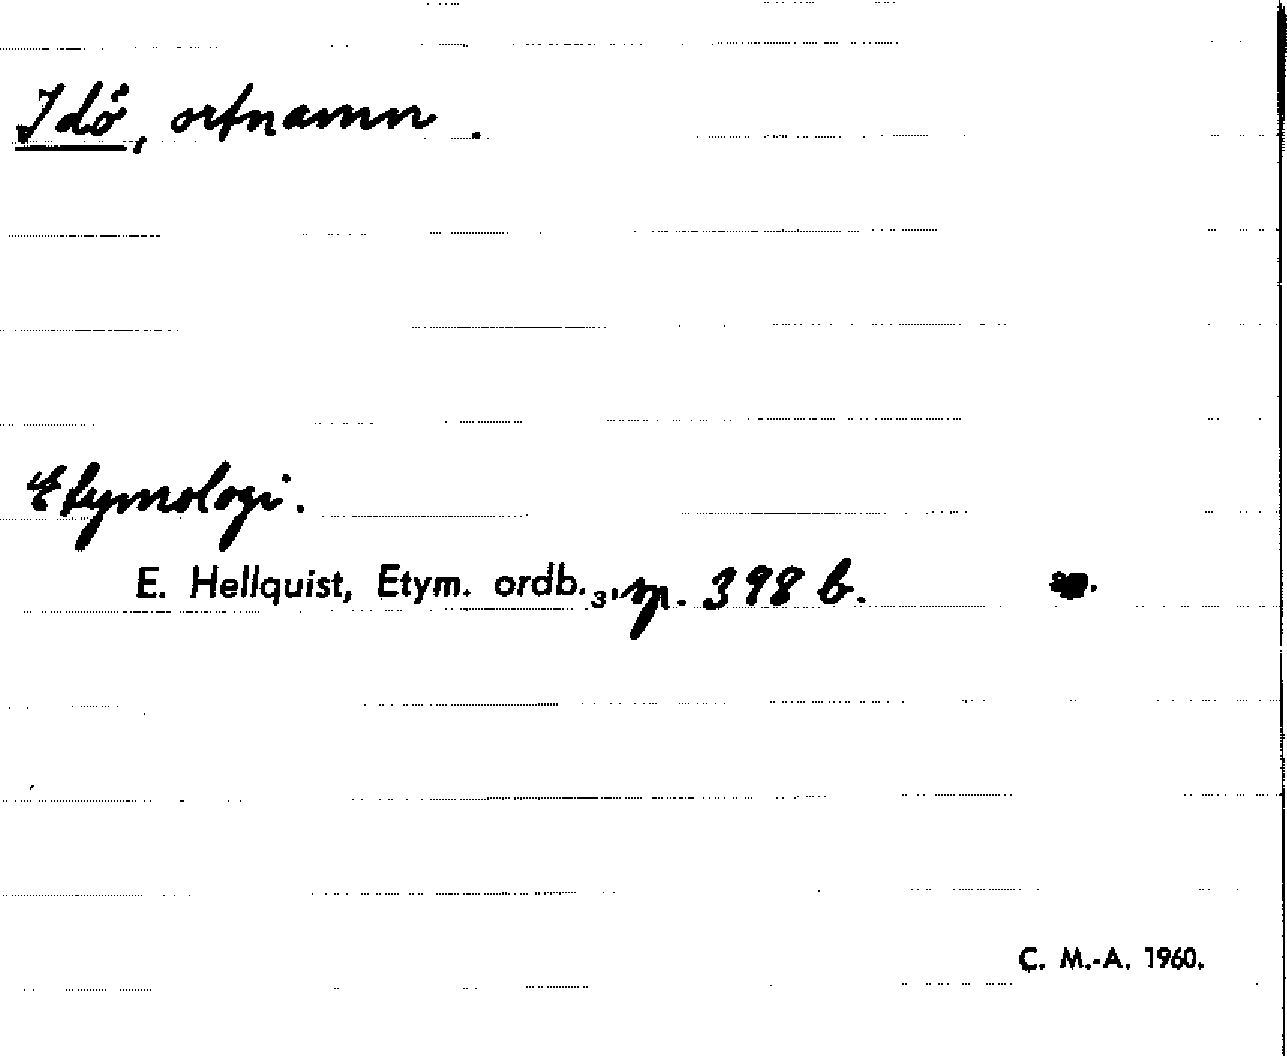 Idö, ortnamn.
Etymologi.
E. Hellquist, Etym. ordb. 3, sp. 398 b.
C. M.-A. 1960.